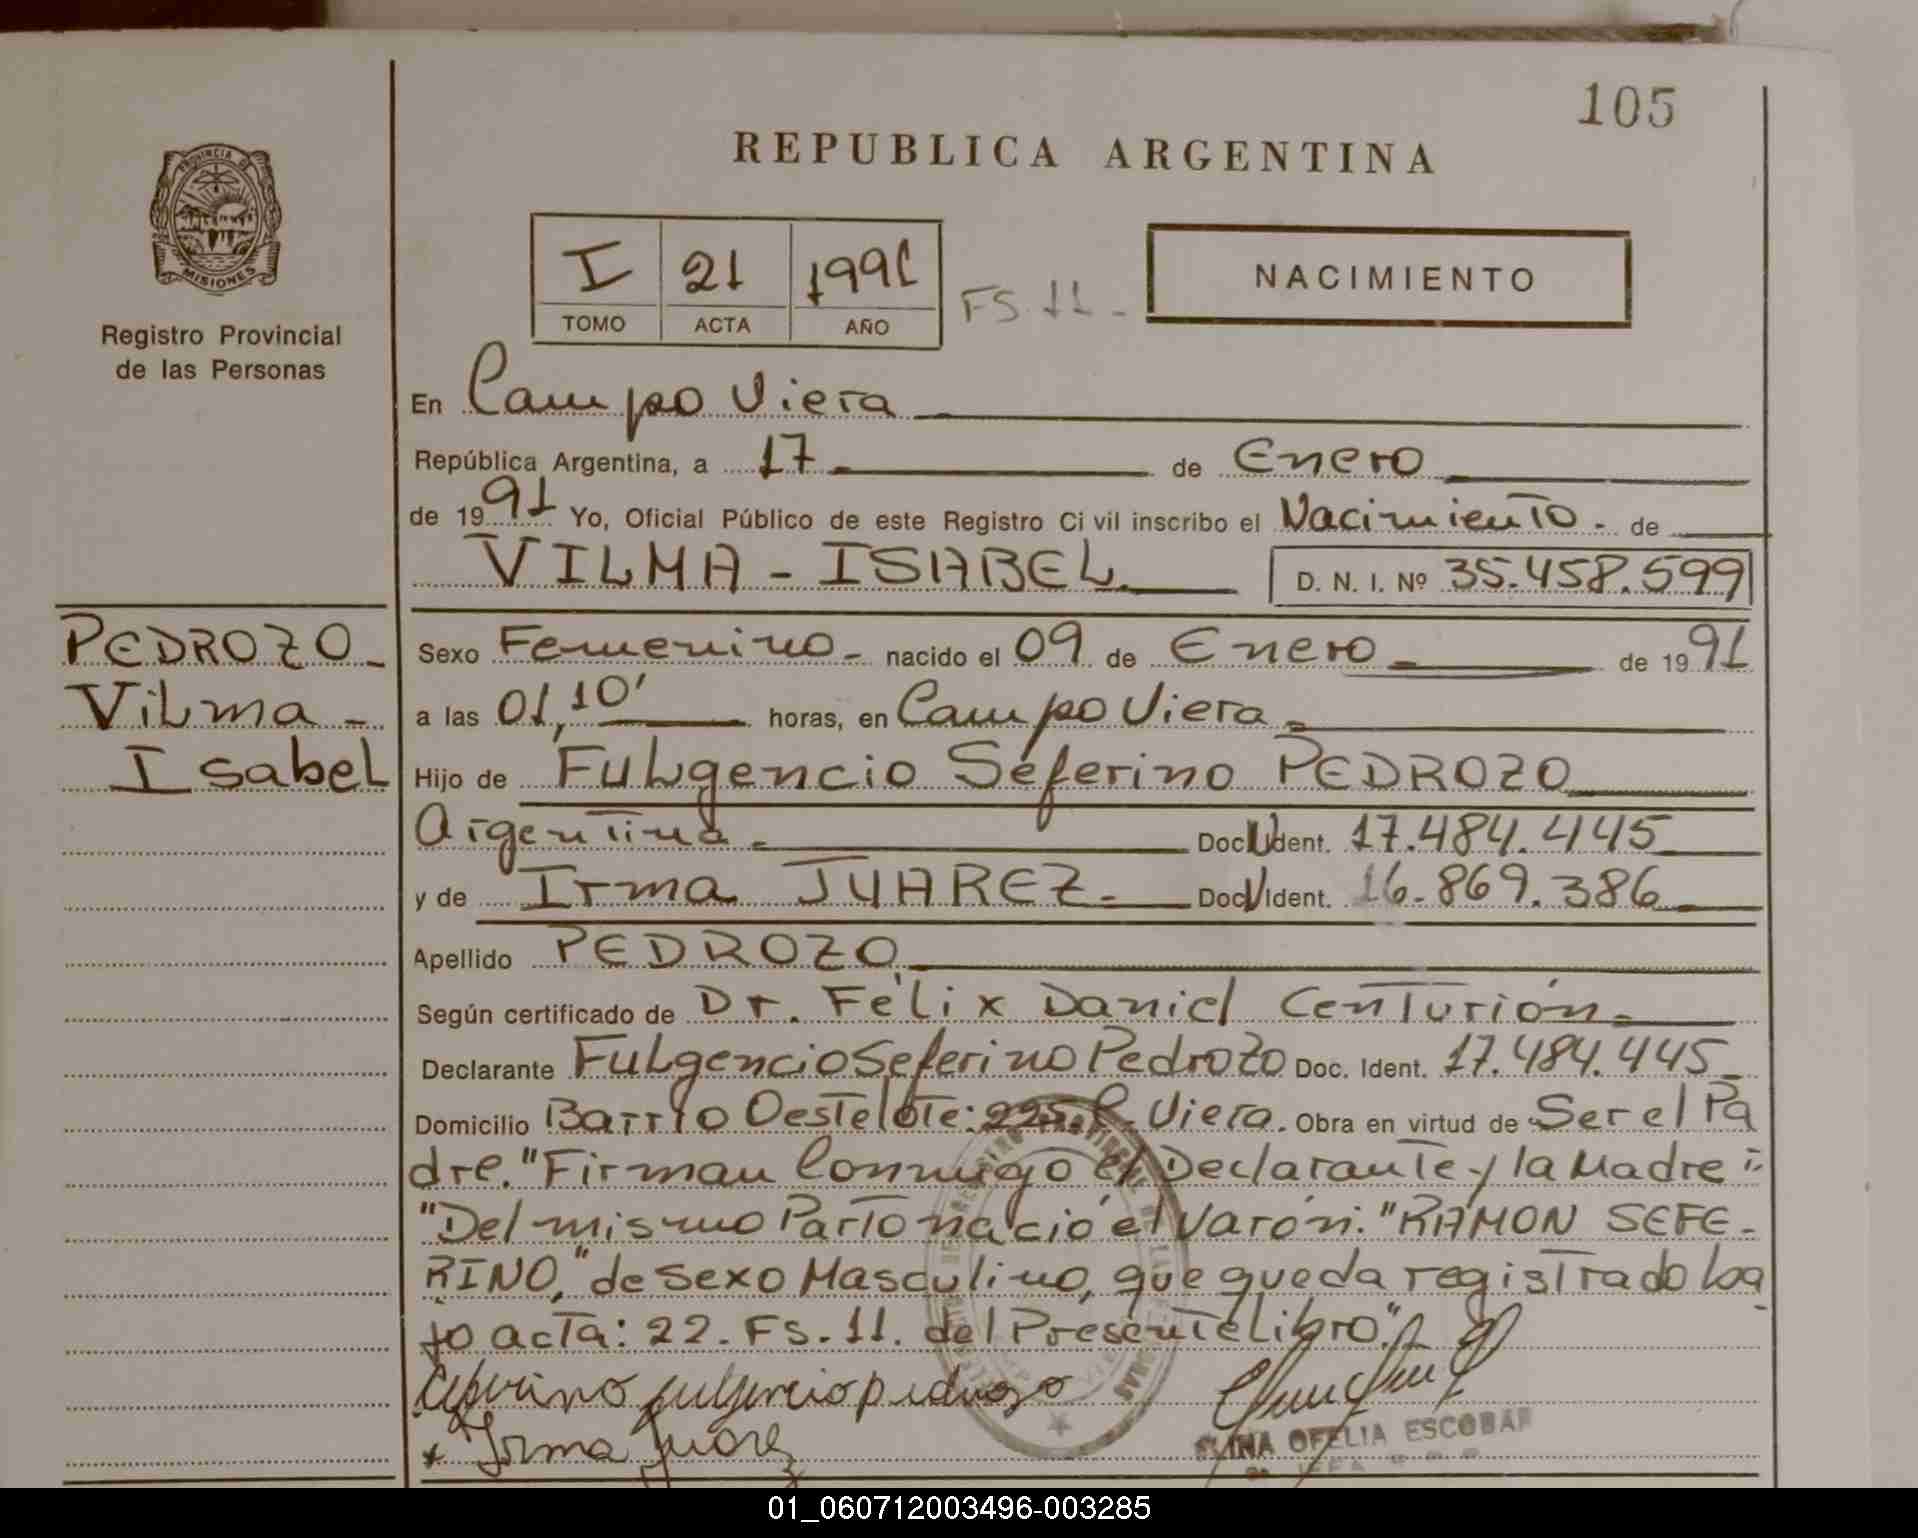 105
REPUBLICA ARGENTINA
PROVINCIA DE
MISIONES
Registro Provincial
de las Personas
I 21 1991 FS. 11 -
TOMO ACTA AÑO
NACIMIENTO
En Campo Viera
República Argentina, a 17 de Enero
de 1991 Yo, Oficial Público de este Registro Civil inscribo el Nacimiento - de
VILMA - ISABEL D. N. I. Nº 35.458.599
PEDROZO -
Vilma -
Isabel
Sexo Femenino - nacido el 09 de Enero de 1991
a las 01,10' horas, en Campo Viera
Hijo de Fulgencio Seferino PEDROZO
Argentina Doc. U Ident. 17.484.445
y de Irma JUAREZ. Doc. U Ident. 16.869.386
Apellido PEDROZO
Según certificado de Dr. Félix Daniel Centurión
Declarante Fulgencio Seferino Pedrozo Doc. Ident. 17.484.445
Domicilio Barrio Oeste lote: 225. C. Viera. Obra en virtud de Ser el Pa
dre. "Firman Conmigo el Declarante y la Madre":
"Del mismo Parto nació el varón: "RAMON SEFE-
RINO," de sexo Masculino, que queda registrado ba
jo acta: 22. Fs. 11. del Presente Libro".
Ceferino fulgencio pedrozo
Irma Juarez
OFELIA ESCOBAR
01_060712003496-003285